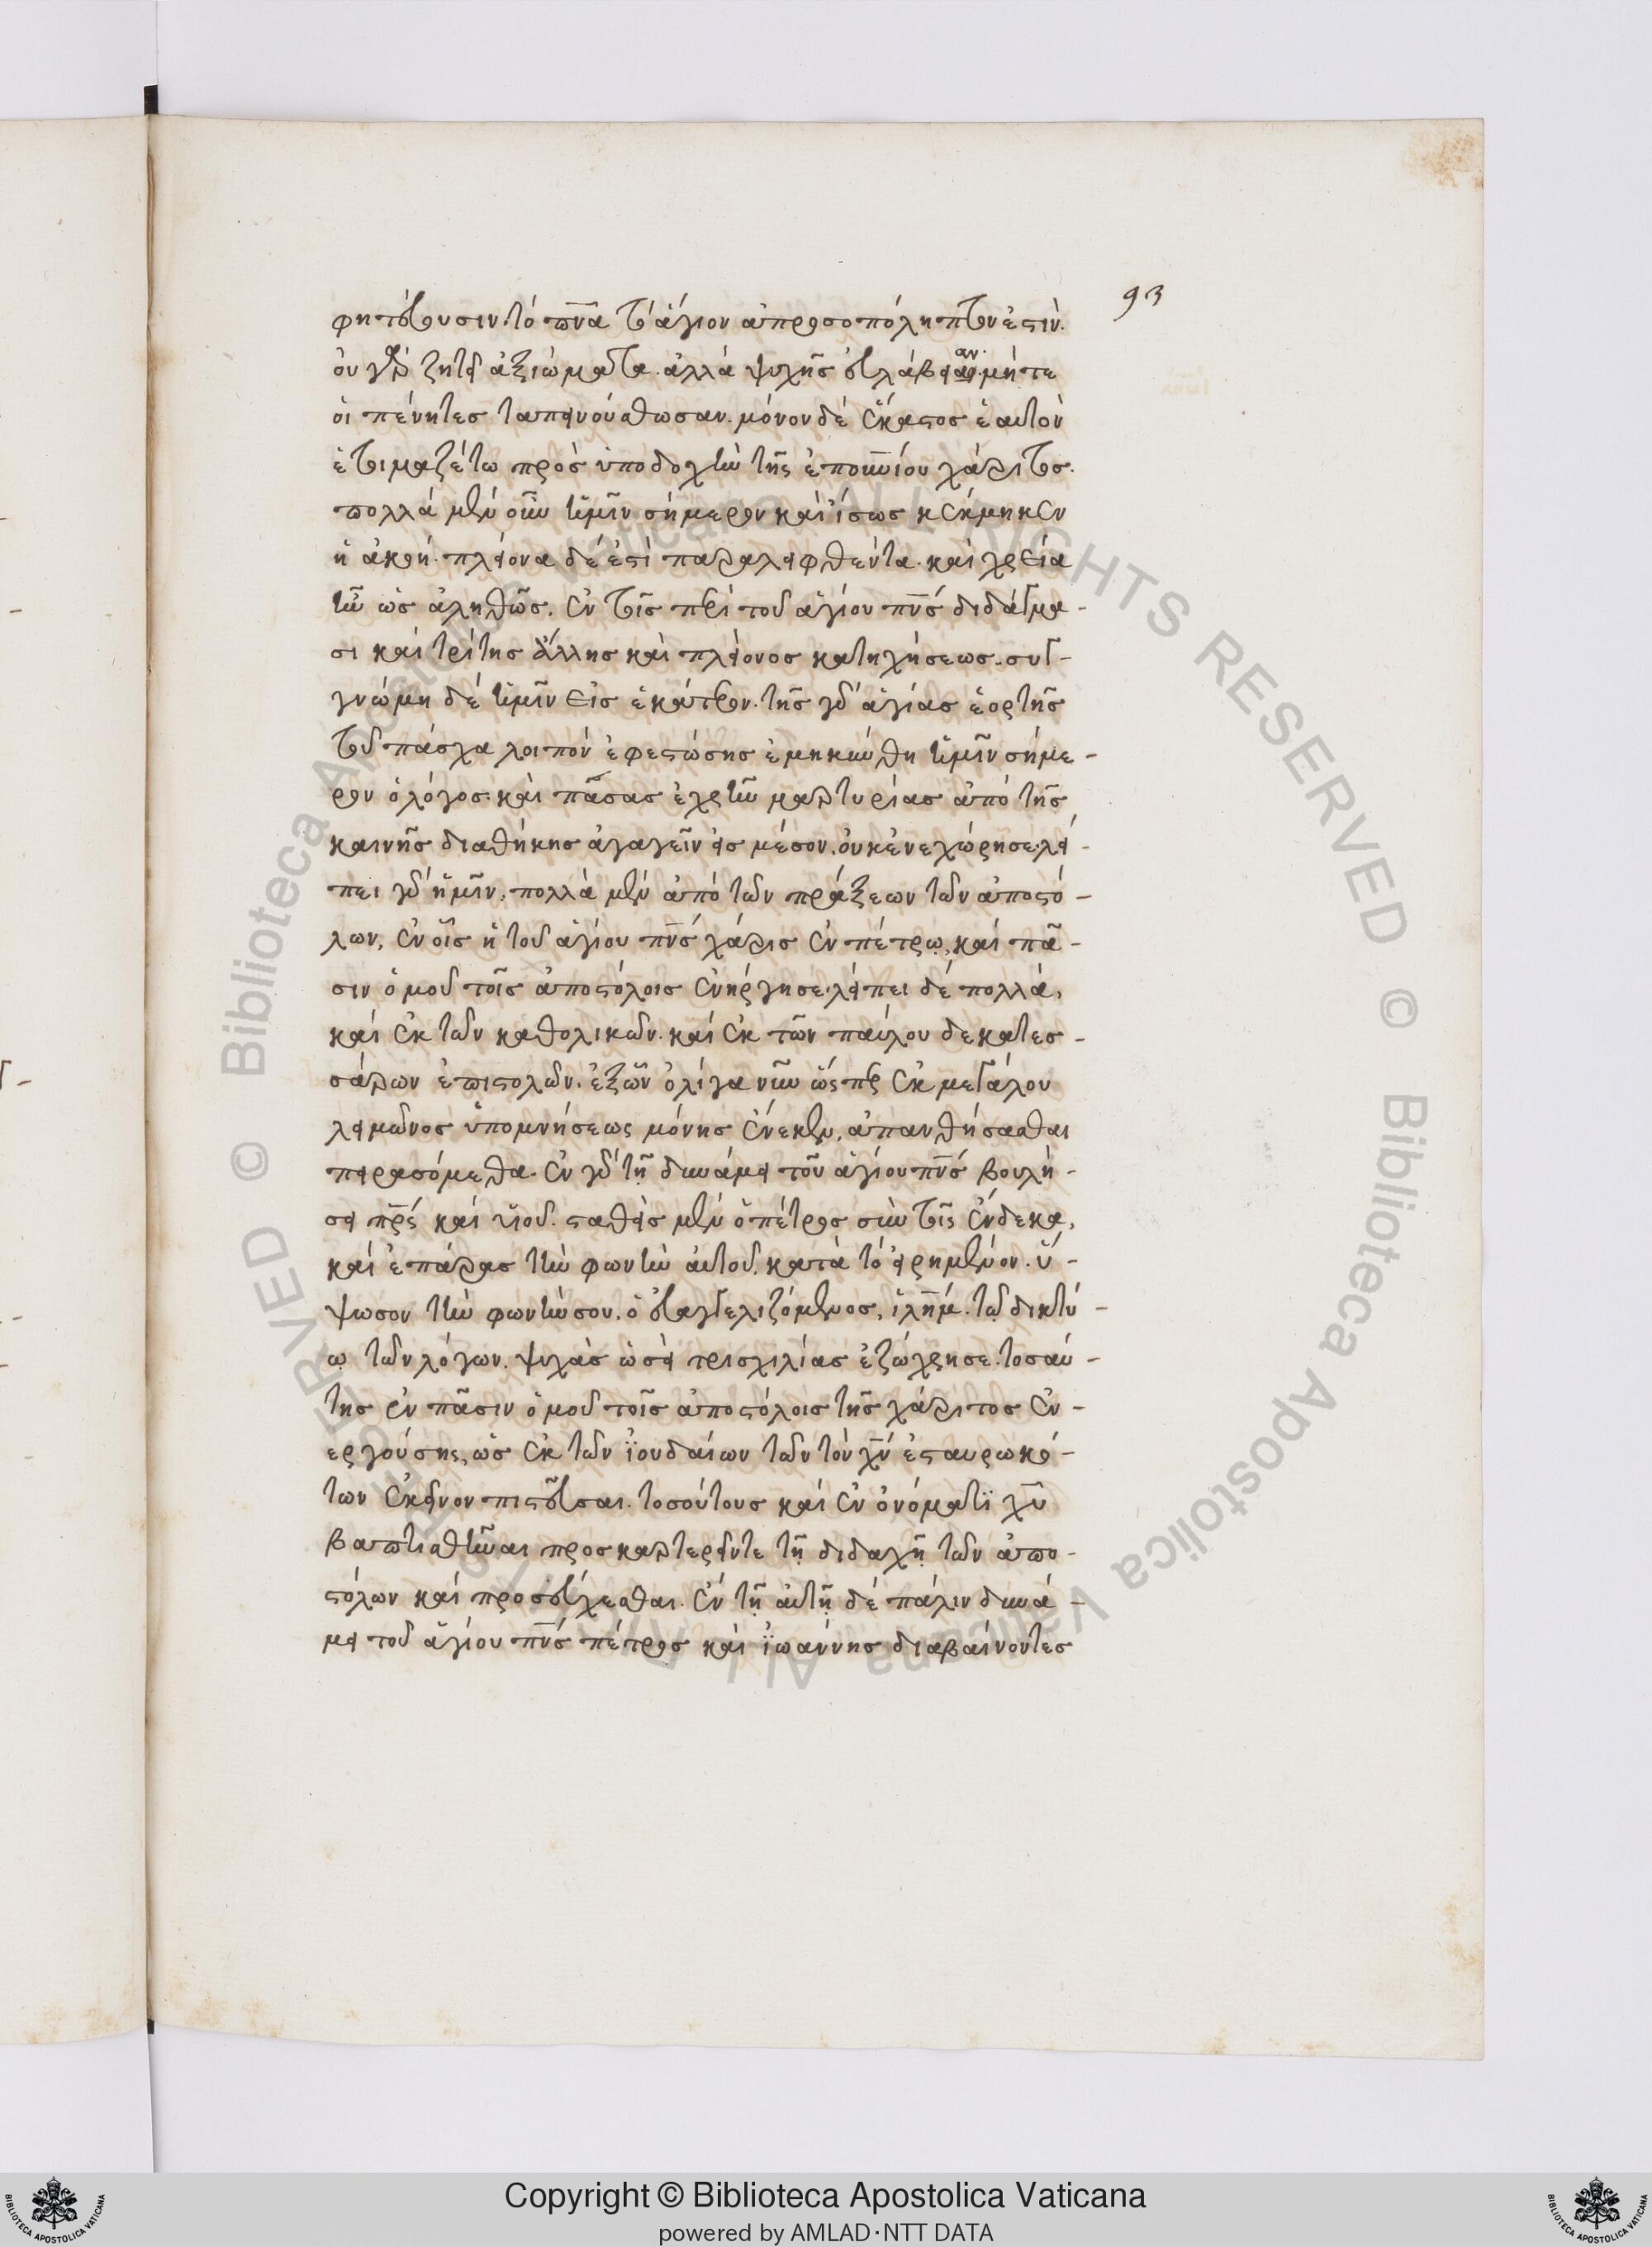 93
φητεύουσιν. τὸ πνα τὸ ἅγιον ἀπροσοπόληπτον ἐστὶν.
οὐ γὰρ ζητεῖ ἀξιώματα. ἀλλὰ ψυχῆς εὐλάβειαν. μήτε
οἱ πένητες ταπεινούσθωσαν. μόνον δὲ ἕκαστος ἑαυτὸν
ἑτοιμαζέτω πρὸς ὑποδοχὴν τῆς ἐπουνίου χάριτος.
πολλὰ μὲν οὖν ἡμῖν σήμερον καὶ ἴσως κεκμηκεν
ἡ ἀκοή. πλείονα δὲ ἐστὶ παραλειφθέντα. καὶ χρεία
ἦν ὡς ἀληθῶς. ἐν τοῖς περὶ τοῦ ἁγίου πνς διδάγμα-
σι καὶ τρίτης ἄλλης καὶ πλείονος κατηχήσεως. συγ-
γνώμη δὲ ἡμῖν εἰς ἑκάτερον. τῆς γὰρ ἁγίας ἑορτῆς
τοῦ πάσχα λοιπὸν ἐφεστώσης ἐμηκύνθη ἡμῖν σήμε-
ρον ὁ λόγος. καὶ πάσας ἐχρῆν μαρτυρίας ἀπὸ τῆς
καινῆς διαθήκης ἀγαγεῖν εἰς μέσον. οὐκ ἐνεχώρησε. λεί-
πει γὰρ ἡμῖν. πολλὰ μὲν ἀπὸ τῶν πράξεων τῶν ἀποστό-
λων, ἐν οἷς ἡ τοῦ ἁγίου πνς χάρις ἐν πέτρῳ, καὶ πᾶ-
σιν ὁμοῦ τοῖς ἀποστόλοις ἐνήργησε. λείπει δὲ πολλὰ,
καὶ ἐκ τῶν καθολικῶν. καὶ ἐκ τῶν παύλου δεκατεσ-
σάρων ἐπιστολῶν. ἐξ ὧν ὀλίγα νῦν ὥσπερ ἐκ μεγάλου
λειμῶνος ὑπομνήσεως μόνης ἕνεκεν, ἀπανθήσασθαι
πειρασόμεθα. ἐν γὰρ τῇ δυνάμει τοῦ ἁγίου πνς βουλή-
σει πρς καὶ υἱοῦ. σταθεὶς μὲν ὁ πέτρος σὺν τοῖς ἕνδεκα,
καὶ ἐπάρας τὴν φωνὴν αὐτοῦ. κατὰ τὸ εἰρημένον. ὕ-
ψωσον τὴν φωνήν σου. ὁ εὐαγγελιζόμενος, ἱλημ. τῷ δικτύ-
ῳ τῶν λόγων. ψυχὰς ὡσεὶ τρισχιλίας ἐζώγρησε. τοσαύ-
της ἐν πᾶσιν ὁμοῦ τοῖς ἀποστόλοις τῆς χάριτος ἐν-
εργούσης, ὡς ἐκ τῶν ἰουδαίων τῶν τὸν χν ἐσταυρωκό-
των ἐκεῖνον πιστεῦσαι. τοσούτους καὶ ἐν ὀνόματϊ χυ
βαπτισθῆναι προσκαρτερεῖντε τῇ διδαχῇ τῶν ἀπο-
στόλων καὶ προσεύχεσθαι. ἐν τῇ αὐτῇ δὲ πάλιν δυνά-
μει τοῦ ἁγίου πνς πέτρος καὶ ἰωάννης διαβαίνοντες
Copyright © Biblioteca Apostolica Vaticana
powered by AMLAD·NTT DATA